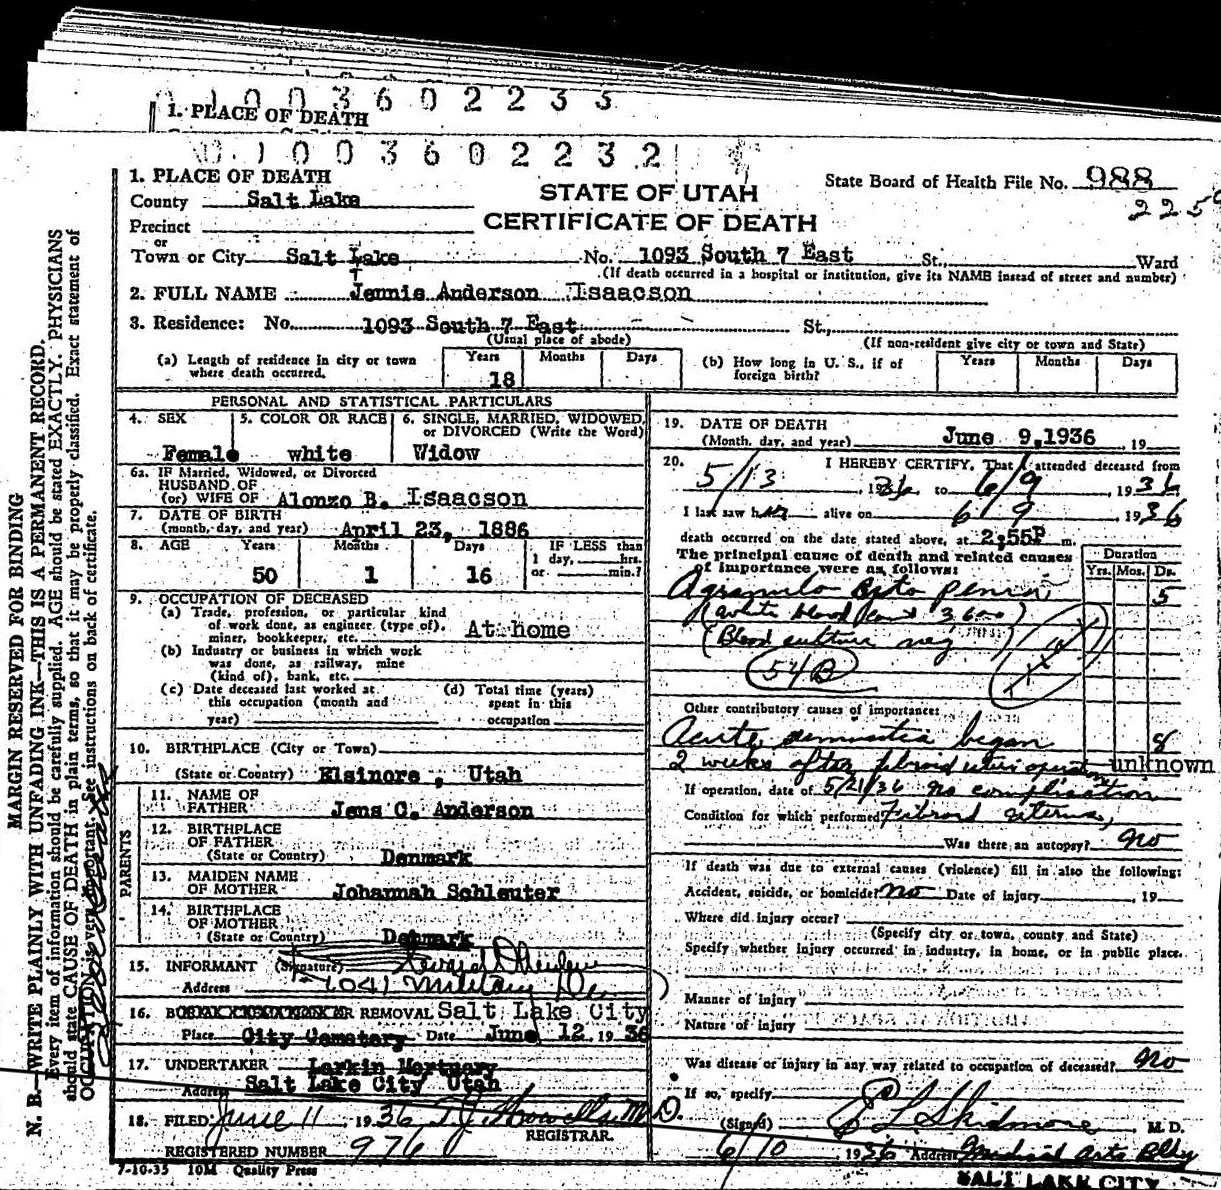 0 1 0 0 3 6 0 2 2 3 3
1. PLACE OF DEATH
0 1 0 0 3 6 0 2 2 3 2
1. PLACE OF DEATH
County Salt Lake
STATE OF UTAH
CERTIFICATE OF DEATH
State Board of Health File No. 988
225
Precinct
or
Town or City Salt Lake No. 1093 South 7 East St., Ward
(If death occurred in a hospital or institution, give its NAME instead of street and number)
2. FULL NAME Jennie Anderson Isaacson
3. Residence: No. 1093 South 7 East St.,
(Usual place of abode) (If non-resident give city or town and State)
(a) Length of residence in city or town where death occurred. Years 18 Months Days
(b) How long in U. S., if of foreign birth? Years Months Days
PERSONAL AND STATISTICAL PARTICULARS
4. SEX Female
5. COLOR OR RACE white
6. SINGLE, MARRIED, WIDOWED, or DIVORCED (Write the Word) Widow
6a. IF Married, Widowed, or Divorced
HUSBAND OF
(or) WIFE OF Alonzo B. Isaacson
7. DATE OF BIRTH
(month, day, and year) April 23, 1886
8. AGE Years 50 Months 1 Days 16 IF LESS than 1 day, hrs. or min.?
9. OCCUPATION OF DECEASED
(a) Trade, profession, or particular kind
of work done, as engineer, (type of),
miner, bookkeeper, etc. At home
(b) Industry or business in which work
was done, as railway, mine
(kind of), bank, etc.
(c) Date deceased last worked at
this occupation (month and
year)
(d) Total time (years)
spent in this
occupation
10. BIRTHPLACE (City or Town)
(State or Country) Elsinore, Utah
PARENTS
11. NAME OF
FATHER Jens C. Anderson
12. BIRTHPLACE
OF FATHER
(State or Country) Denmark
13. MAIDEN NAME
OF MOTHER Johannah Schleuter
14. BIRTHPLACE
OF MOTHER
(State or Country) Denmark
15. INFORMANT (Signature)
Address 1041 Military Dr
16. REMOVAL Salt Lake City
Place City Cemetery Date June 12, 1936
17. UNDERTAKER Larkin Mortuary
Address Salt Lake City Utah
18. FILED June 11 1936 T.J. Howells M.D.
REGISTRAR.
REGISTERED NUMBER 976
7-10-35 10M Quality Press
19. DATE OF DEATH
(Month, day, and year) June 9, 1936 19
20. I HEREBY CERTIFY, That I attended deceased from
5/13, 1936 to 6/9, 1936
I last saw her alive on 6 9 1936
death occurred on the date stated above, at 2:55P m.
The principal cause of death and related causes
of importance were as follows:
Duration
Yrs. Mos. Ds.
Agranulo cyto penia 5
(white blood count 3600)
(Blood culture neg)
54B
Other contributory causes of importance:
Acute began 8
2 weeks after fibroid uterus operation unknown
If operation, date of 5/21/36 no complication
Condition for which performed Fibroid uterus,
Was there an autopsy? no
If death was due to external causes (violence) fill in also the following:
Accident, suicide, or homicide? no Date of injury 19
Where did injury occur?
(Specify city or town, county and State)
Specify whether injury occurred in industry, in home, or in public place.
Manner of injury
Nature of injury
Was disease or injury in any way related to occupation of deceased? no
If so, specify
(Signed) E L Skidmore M. D.
6/10 1936 Address Medical Arts Bldg
SALT LAKE CITY
MARGIN RESERVED FOR BINDING
N. B.—WRITE PLAINLY WITH UNFADING INK—THIS IS A PERMANENT RECORD.
Every item of information should be carefully supplied. AGE should be stated EXACTLY. PHYSICIANS
should state CAUSE OF DEATH in plain terms, so that it may be properly classified. Exact statement of
OCCUPATION is very important. See instructions on back of certificate.